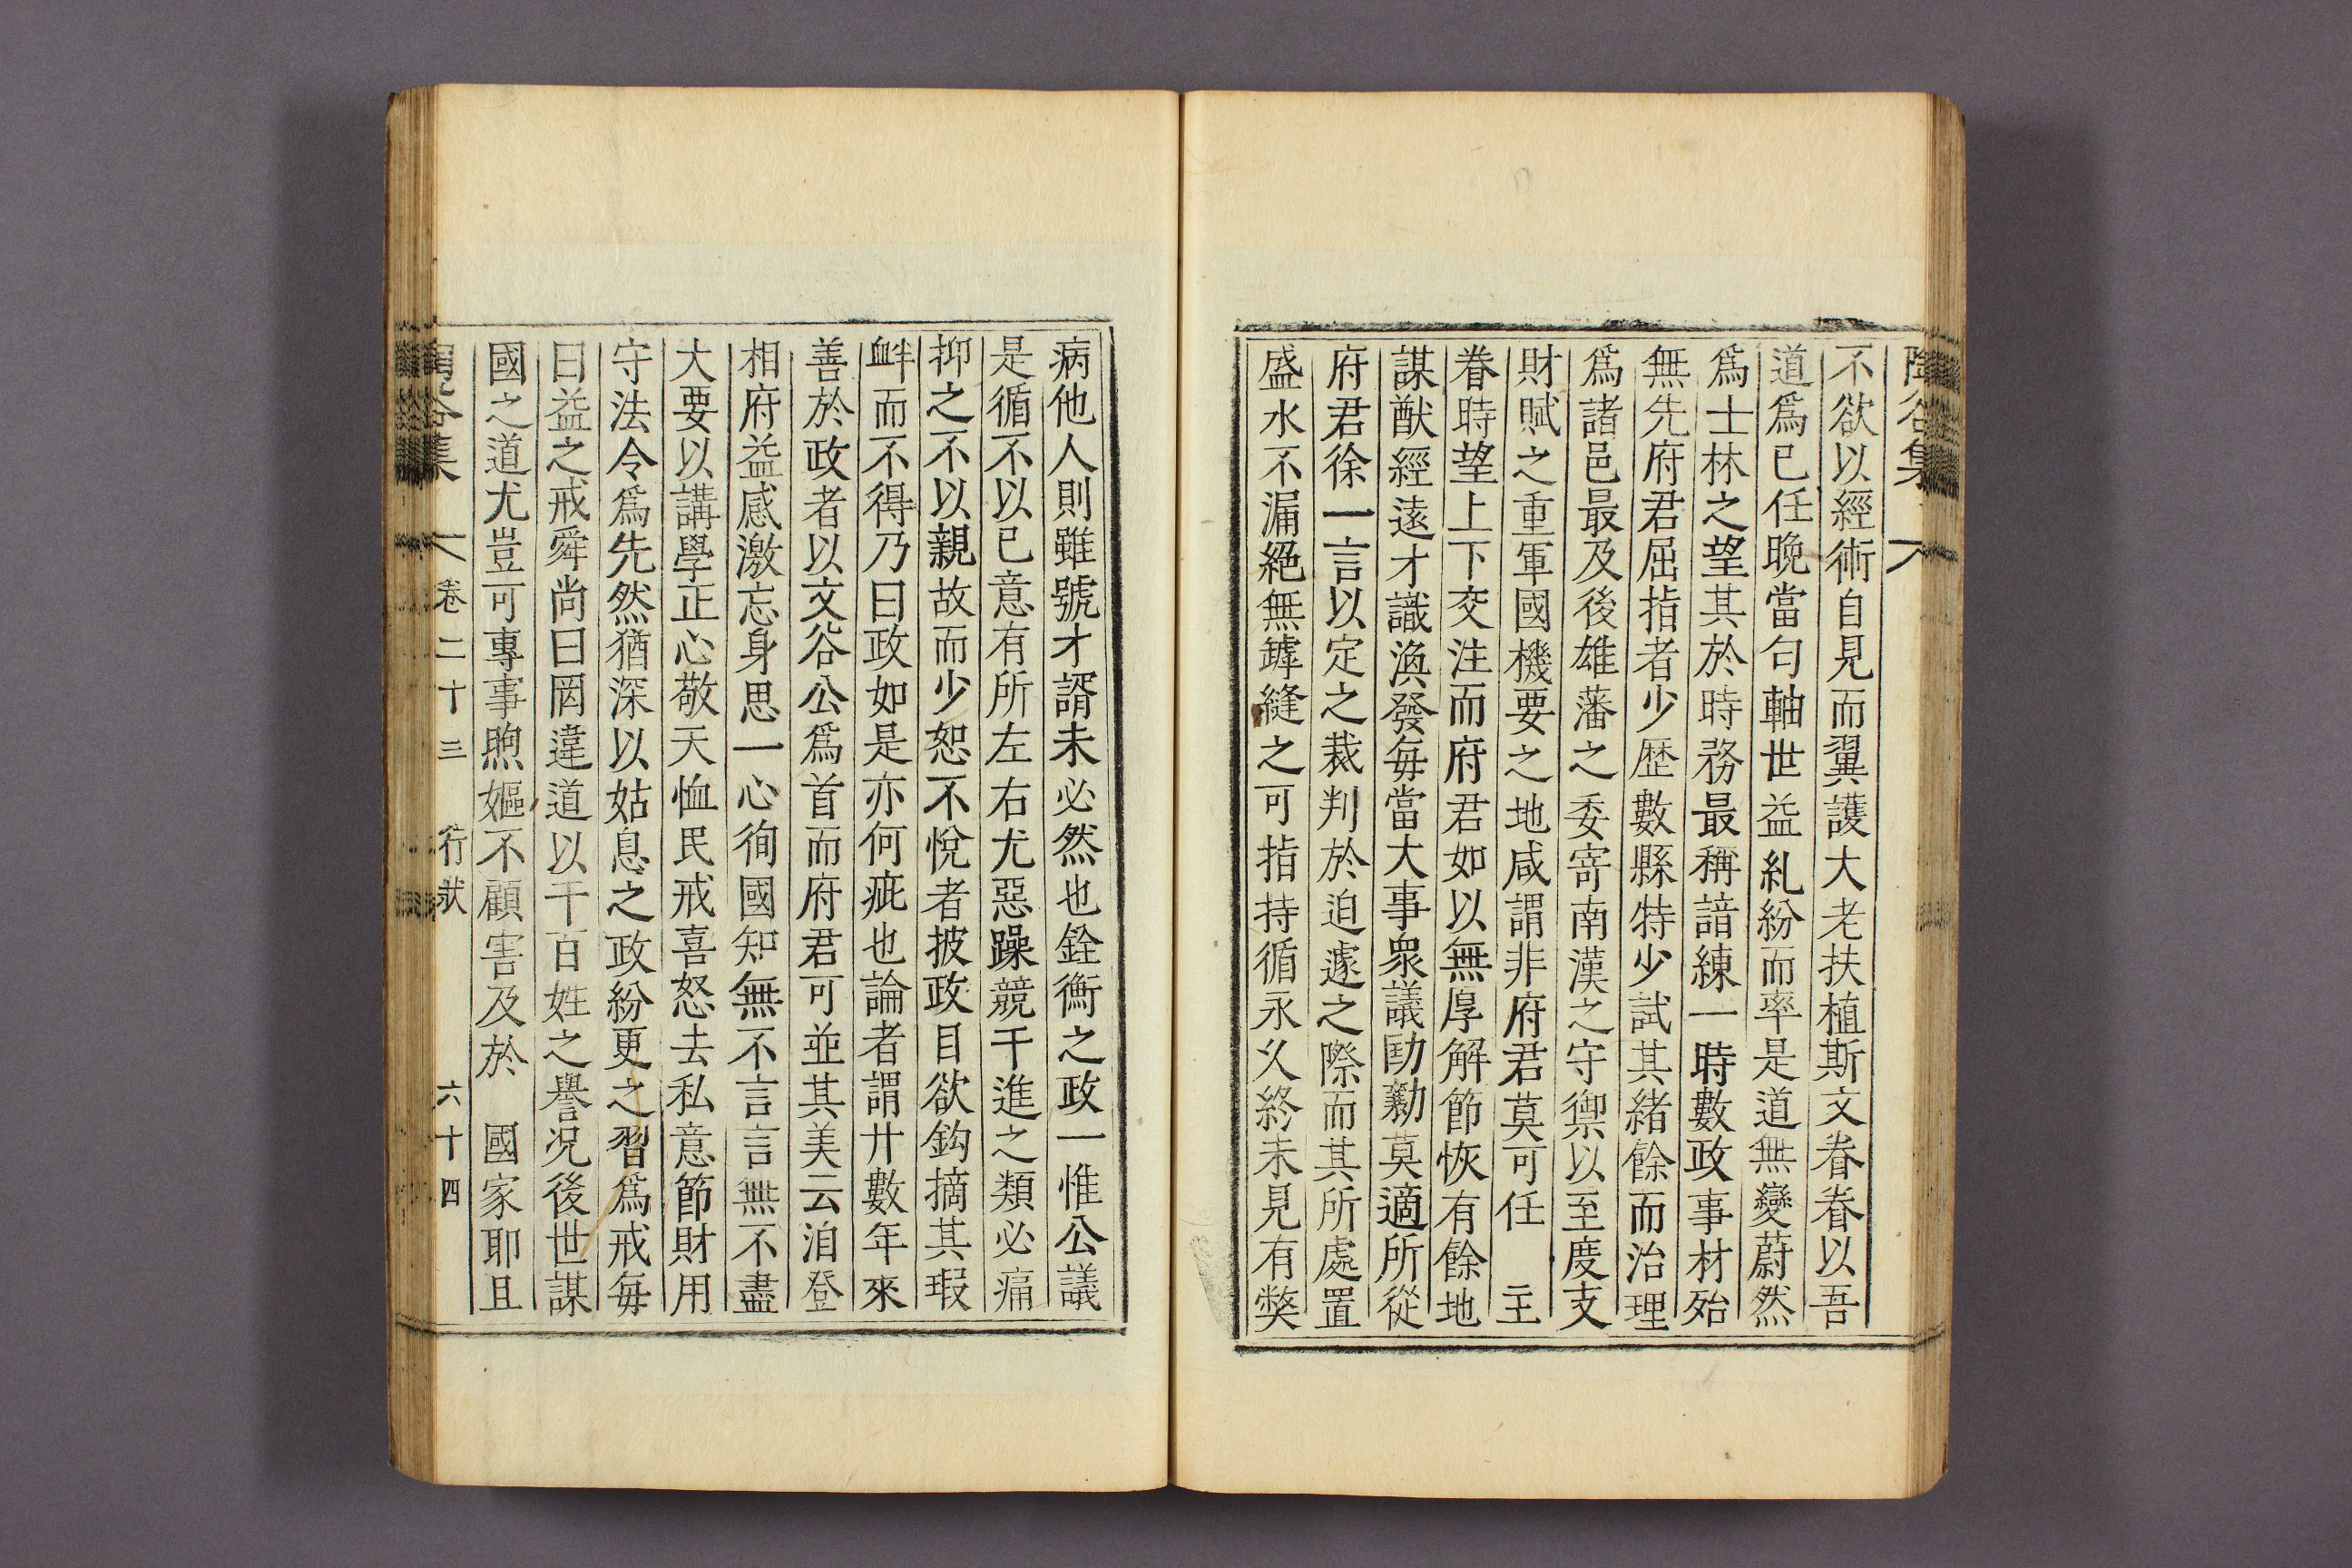 陶谷集
不欲以經術自見而翼護大老扶植斯文眷眷以吾
道爲已任晩當匀軸世益糺紛而率是道無變蔚然
爲士林之望其於時務最稱諳練一時數政事材殆
無先府君屈指者少歷數縣特少試其緖餘而治理
爲諸邑最及後雄藩之委寄南漢之守禦以至度支
財賦之重軍國機要之地咸謂非府君莫可任 主
眷時望上下交注而府君如以無厚解節恢有餘地
謀猷經遠才識渙發每當大事衆議劻勷莫適所從
府君徐一言以定之裁判於迫遽之際而其所處置
盛水不漏絕無罅縫之可指持循永久終未見有獘
病他人則雖號才諝未必然也銓衡之政一惟公議
是循不以已意有所左右尤惡躁競干進之類必痛
抑之不以親故而少恕不悅者披政目欲鈎摘其瑕
衅而不得乃曰政如是亦何疵也論者謂廾數年來
善於政者以文谷公爲首而府君可並其美云洎登
相府益感激忘身思一心徇國知無不言言無不盡
大要以講學正心敬天恤民戒喜怒去私意節財用
守法令爲先然猶深以姑息之政紛更之習爲戒每
曰益之戒舜尚曰罔違道以干百姓之譽况後世謀
國之道尤豈可專事煦嫗不顧害及於 國家耶且
卷二十三 行狀 六十四